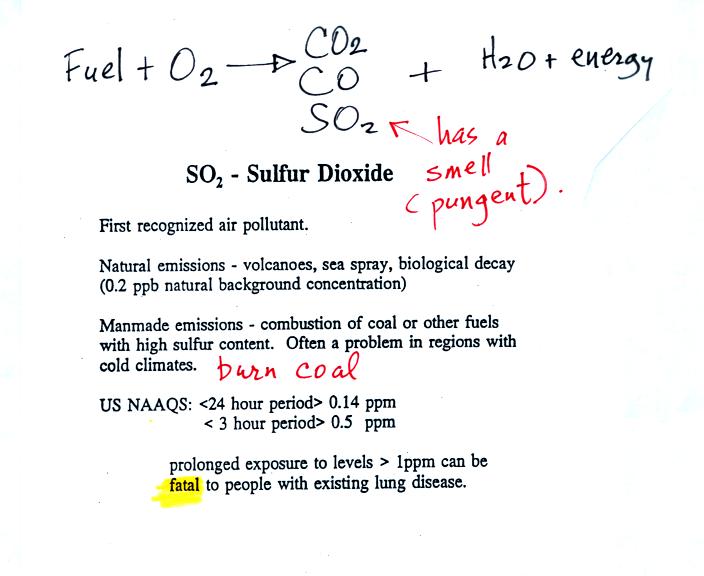 Fuel + O2 → CO2 + H2O + energy
CO
SO2 ← has a
smell
(pungent).
SO2 - Sulfur Dioxide
First recognized air pollutant.
Natural emissions - volcanoes, sea spray, biological decay
(0.2 ppb natural background concentration)
Manmade emissions - combustion of coal or other fuels
with high sulfur content. Often a problem in regions with
cold climates. burn coal
US NAAQS: <24 hour period> 0.14 ppm
< 3 hour period> 0.5 ppm
prolonged exposure to levels > 1ppm can be
fatal to people with existing lung disease.